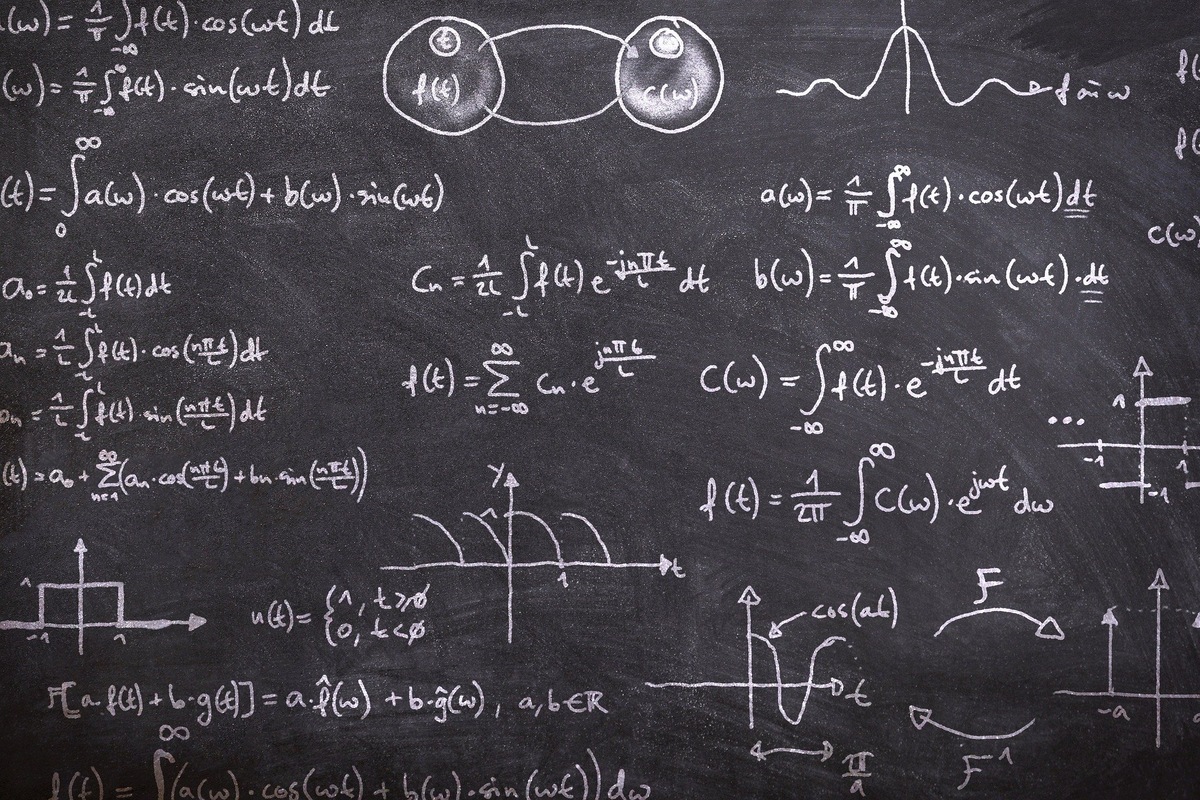 (ω) = 1/π ∫_{-∞} f(t) · cos(ωt) dt
(ω) = 1/π ∫_{-∞}^{∞} f(t) · sin(ωt) dt
t
f(t)
c(ω)
f
ω
f(
f(
(t) = ∫_0^∞ a(ω) · cos(ωt) + b(ω) · sin(ωt)
a(ω) = 1/π ∫_{-∞}^{∞} f(t) · cos(ωt) dt
c(ω)
a₀ = 1/2L ∫_{-L}^{L} f(t) dt
Cₙ = 1/2L ∫_{-L}^{L} f(t) e^{-jnπt/L} dt
b(ω) = 1/π ∫_{-∞}^{∞} f(t) · sin(ωt) · dt
aₙ = 1/L ∫_{-L}^{L} f(t) · cos(nπt/L) dt
f(t) = Σ_{n=-∞}^{∞} Cₙ · e^{jnπt/L}
C(ω) = ∫_{-∞}^{∞} f(t) · e^{-jnπt/L} dt
bₙ = 1/L ∫_{-L}^{L} f(t) · sin(nπt/L) dt
...
1
-1
1
-1
(t) = a₀ + Σ_{n=1}^{∞} (aₙ · cos(nπt/L) + bₙ · sin(nπt/L))
f(t) = 1/2π ∫_{-∞}^{∞} C(ω) · e^{jωt} dω
y
1
1
t
1
-1
1
u(t) = {1, t≥0
0, t<0
cos(at)
t
π/a
F
F⁻¹
-a
F[a·f(t) + b·g(t)] = a·f̂(ω) + b·ĝ(ω), a,b∈ℝ
f(t) = ∫^∞ (a(ω) · cos(ωt) + b(ω) · sin(ωt)) dω